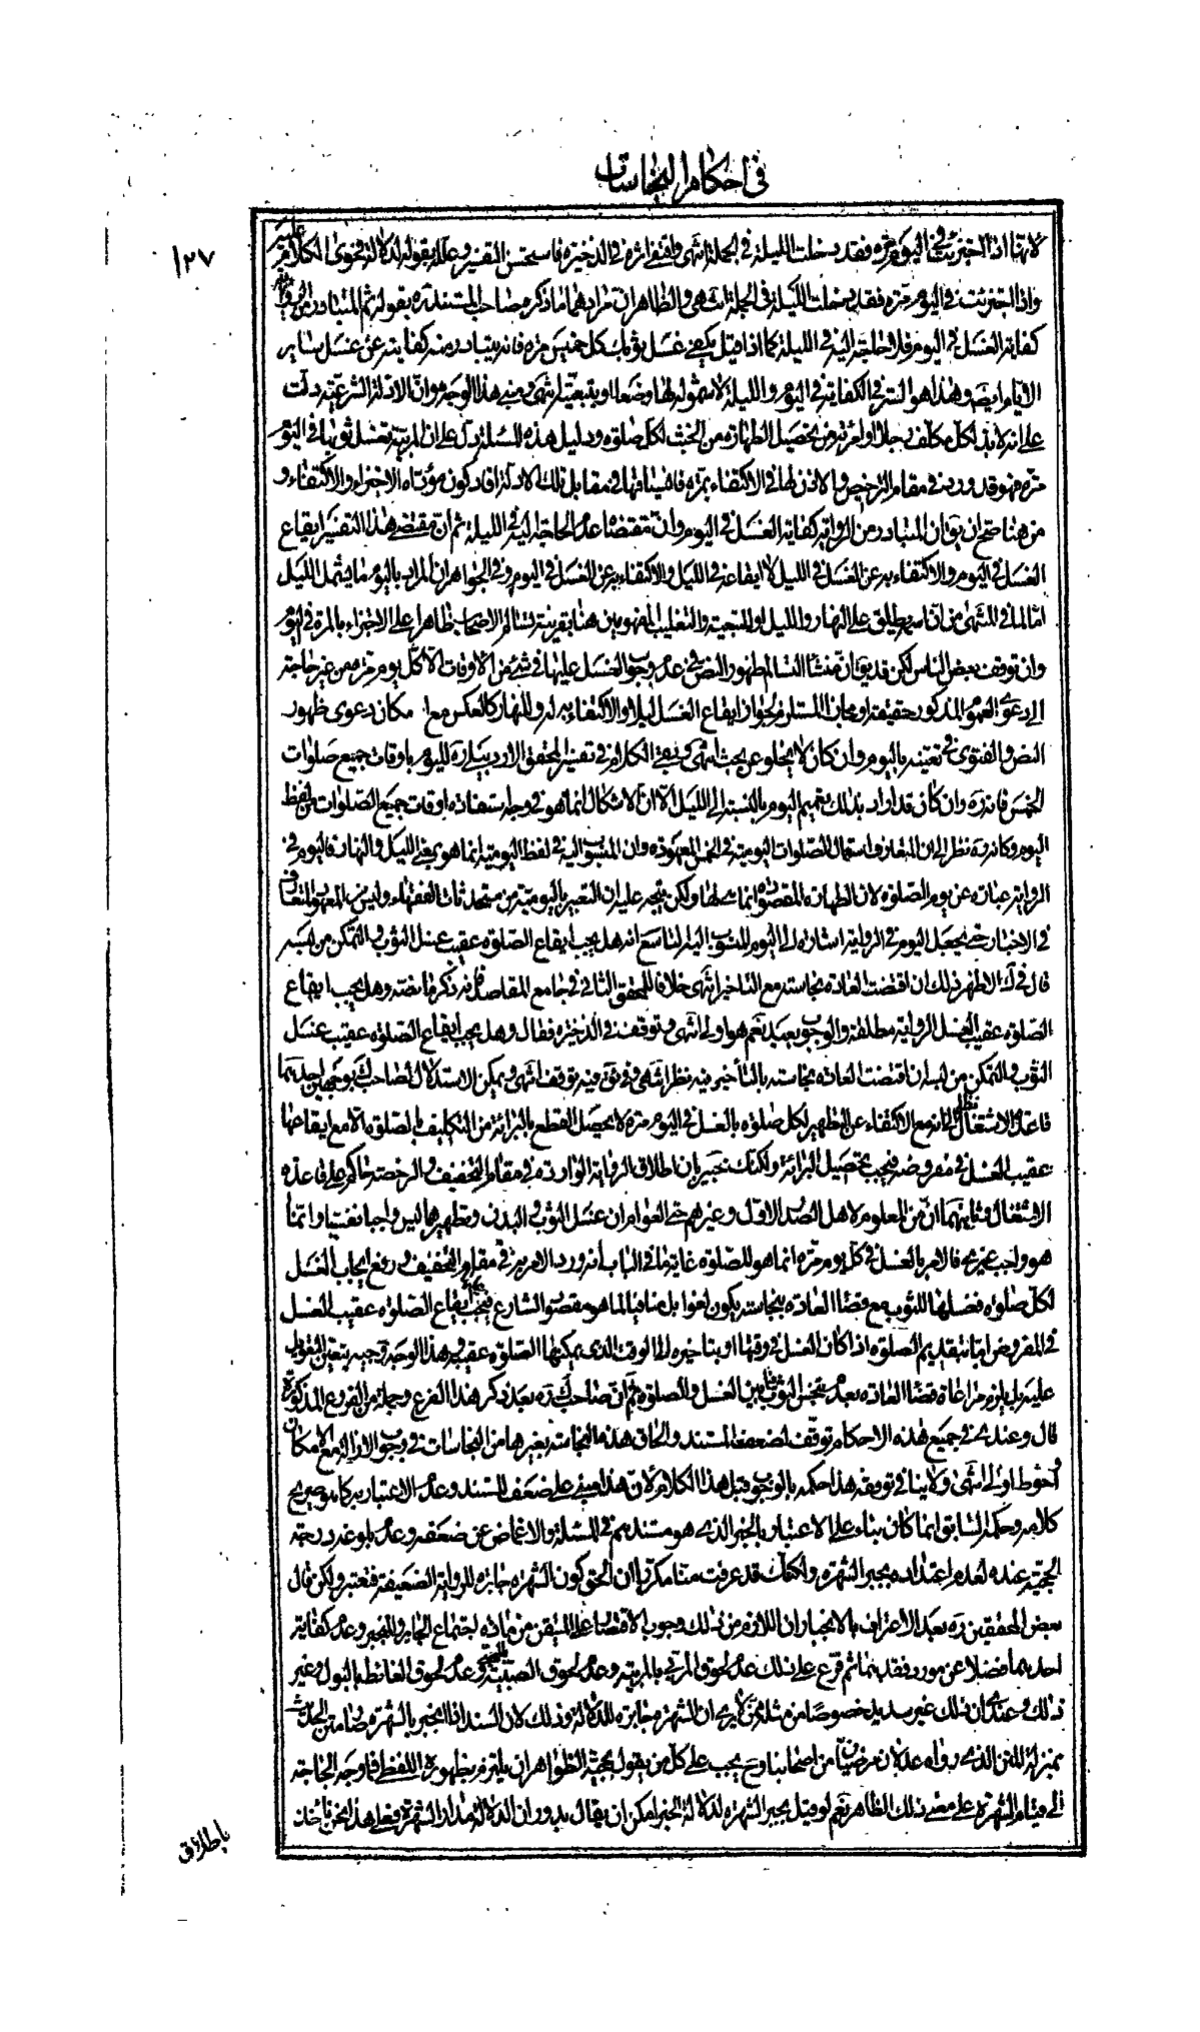 في احكام النجاسات
١٢٧
لانها اذا اجتزئت في اليوم بمرة فقد دخلت الليلة في الجملة انتهى واقتفى اثره في الذخيرة فاستحسن التفسير وعلله بقوله لدلالة فحوى الكلام عليه
واذا اجتزئت في اليوم بمرة فقد دخلت الليلة في الجملة انتهى والظاهر ان مرادهما ما ذكره صاحب المستند ره بقوله ثم المتبادر من
كفاية الغسل في اليوم فلا حاجة اليه في الليلة كما اذا قيل يكفي غسل ثوبك كل خميس مرة فانه يتبادر منه كفايته عن غسل سائر
الايام ايضا وهذا هو السر في الكفاية في اليوم والليلة لا شموله لها وضعا او بتبعية انتهى ومبنى هذا الوجه هو ان الادلة الشرعية دلت
على انه لا بد لكل مكلف رجلا او امرئة من تحصيل الطهارة من الخبث لكل صلوة ودليل هذه المسئلة دل على ان المربية تغسل ثوبها في اليوم
مرة فهو قد ورد في مقام الترخيص والاذن لها في الاكتفاء بمرة في مقابل تلك الادلة افاد كون مؤداه الاجتزاء والاكتفاء و
من هنا صح ان يق ان المتبادر من الرواية كفاية الغسل في اليوم وان مقتضاه عدم الحاجة اليه في الليلة ثم ان مقتضى هذا التفسير ايقاع
الغسل في اليوم والاكتفاء به عن الغسل في الليل لا ايقاعه في الليل والاكتفاء به عن الغسل في اليوم وفي الجواهر ان المراد باليوم ما يشمل الليل
اما لما في المنتهى من ان اسمه يطلق على النهار والليل او للتبعية والتغليب المفهومين هنا بقرينة تسالم الاصحاب ظاهرا على الاجتزاء بالمرة في اليوم
وان توقف بعض الناس لكن قد يق ان منشأ التسالم ظهور النص في عدم وجوب الغسل عليها في شئ من الاوقات الا كل يوم مرة من غير حاجة
الى دعوى العموم المذكور حقيقة او مجازا المستلزم لجواز ايقاع الغسل ليلا والاكتفاء به له وللنهار كالعكس مع امكان دعوى ظهور
النص والفتوى في تعيينه باليوم وان كان لا يخلو عن بحث انتهى بقي الكلام في تفسير المحقق الاردبيلي ره لليوم باوقات جميع صلوات
الخمس فانه ره وان كان قد اراد بذلك تعميم اليوم بالنسبة الى الليل الا ان الاشكال انما هو في وجه استفادة اوقات جميع الصلوات من لفظ
اليوم وكانه ره نظر الى ان المتعارف استعمال الصلوات اليومية في الخمس المعهودة وان المنسوب اليه في لفظ اليومية انما هو يعنى الليل والنهار فاليوم في
الرواية عبارة عن يوم الصلوة لان الطهارة المقصودة انما هي لها ولكن يتجه عليه ان التعبير باليومية من مستحدثات الفقهاء وليس من المعهود المتعارف
في الاخبار حتى يجعل اليوم في الرواية اشارة الى اليوم المنسوب اليه التاسع انه هل يجب ايقاع الصلوة عقيب غسل الثوب والتمكن من لبسه
قال في ك الاظهر ذلك ان اقتضت العادة نجاسته مع التاخير انتهى خلافا للمحقق الثاني في جامع المقاصد فانه ذكر ما نصه وهل يجب ايقاع
الصلوة عقيب الغسل الرواية مطلقة والوجوب بعيد نعم هو اولى انتهى وتوقف في الذخيرة فقال وهل يجب ايقاع الصلوة عقيب غسل
الثوب والتمكن من لبسه ان اقتضت العادة نجاسته بالتأخير فيه نظر انتهى توقف انتهى ويمكن الاستدلال لصاحب ك بوجهين احدهما
قاعدة الاشتغال نظرا الى انه مع الاكتفاء عن التطهير لكل صلوة بالغسل في اليوم مرة لا يحصل القطع بالبرائة من التكليف بالصلوة الا مع ايقاعها
عقيب الغسل في مفروضه فيجب تحصيل البرائة ولكنك خبير بان اطلاق الرواية الواردة في مقام التخفيف والرخصة حاكم على قاعدة
الاشتغال وثانيهما ان من المعلوم لاهل الصدر الاول وغيرهم حتى العوام ان غسل الثوب والبدن وتطهيرهما ليس واجبا نفسيا وانما
هو واجب غيري فالامر بالغسل في كل يوم مرة انما هو للصلوة غاية ما في الباب انه ورد الامر به في مقام التخفيف ورفع ايجاب الغسل
لكل صلوة فغسلها للثوب مع قضاء العادة بنجاسته يكون لغوا بل منافيا لما هو مقصود الشارع فيجب ايقاع الصلوة عقيب الغسل
في المفروض اما بتقديم الصلوة اذا كان الغسل في وقتها او بتاخيره الى الوقت الذي يمكنها الصلوة عقيبه وهذا الوجه وجيه يتعين التعويل
عليه بل يلزم مراعاة قضاء العادة بعدم تنجس الثوب بين الغسل والصلوة ثم ان صاحب ك ره بعد ذكر هذا الفرع وجملة من الفروع المذكورة
قال وعندي في جميع هذه الاحكام توقف لضعف المستند والحاق هذه النجاسة بغيرها من النجاسات في وجوب الازالة مع الامكان
احوط واولى انتهى ولا ينافي توقفه هذا حكمه بالوجوب قبل هذا الكلام لان هذا مبني على ضعف المستند وعدم الاعتبار به كما هو صريح
كلامه وحكمه السابق انما كان بناء على الاعتبار بالخبر الذي هو مستندهم في المسئلة والاغماض عن ضعفه وعدم بلوغه درجة
الحجية عنده لعدم اعتداده بجبر الشهرة ولكنك قد عرفت منا مكررا ان الحق كون الشهرة جابرة للرواية الضعيفة فتعتبر ولكن قال
بعض المحققين ره بعد الاعتراف بالانجبار ان اللازم من ذلك وجوب الاقتصار على المتيقن من مادة اجتماع الجابر والمنجبر وعدم كفاية
احدهما فضلا عن مورد فقدهما ثم فرع على ذلك عدم لحوق المربي بالمربية وعدم لحوق الصبية بالصبي وعدم لحوق الغائط بالبول وغير
ذلك وعندي ان ذلك غير سديد خصوصا من مثله ممن لا يرى ان الشهرة جابرة للدلالة وذلك لان السند اذا انجبر بالشهرة صار متن الحديث
بمنزلة المتن الذي رواه عدلان مرضيان من اصحابنا وح يجب على كل من يقول بحجية الظواهر ان يلتزم بظهور اللفظ فما وجه الحاجة
الى قيام الشهرة على معنى ذلك الظاهر نعم لو قيل بجبر الشهرة لدلالة الخبر امكن ان يقال بدوران الدلالة مدار الشهرة فعلى هذا نحن نأخذ
باطلاق